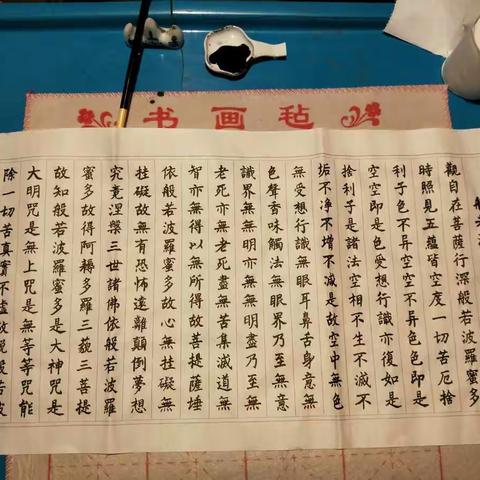 书画毡
般若波
觀自在菩薩行深般若波羅蜜多
時照見五蘊皆空度一切苦厄捨
利子色不异空空不异色色即是
空空即是色受想行識亦復如是
捨利子是諸法空相不生不滅不
垢不净不增不减是故空中無色
無受想行識無眼耳鼻舌身意無
色聲香味觸法無眼界乃至無意
識界無無明亦無無明盡乃至無
老死亦無老死盡無苦集滅道無
智亦無得以無所得故菩提薩埵
依般若波羅蜜多故心無挂礙無
挂礙故無有恐怖遠離顛倒夢想
究竟涅槃三世諸佛依般若波羅
蜜多故得阿耨多羅三藐三菩提
故知般若波羅蜜多是大神咒是
大明咒是無上咒是無等等咒能
除一切苦真實不虛故說般若波